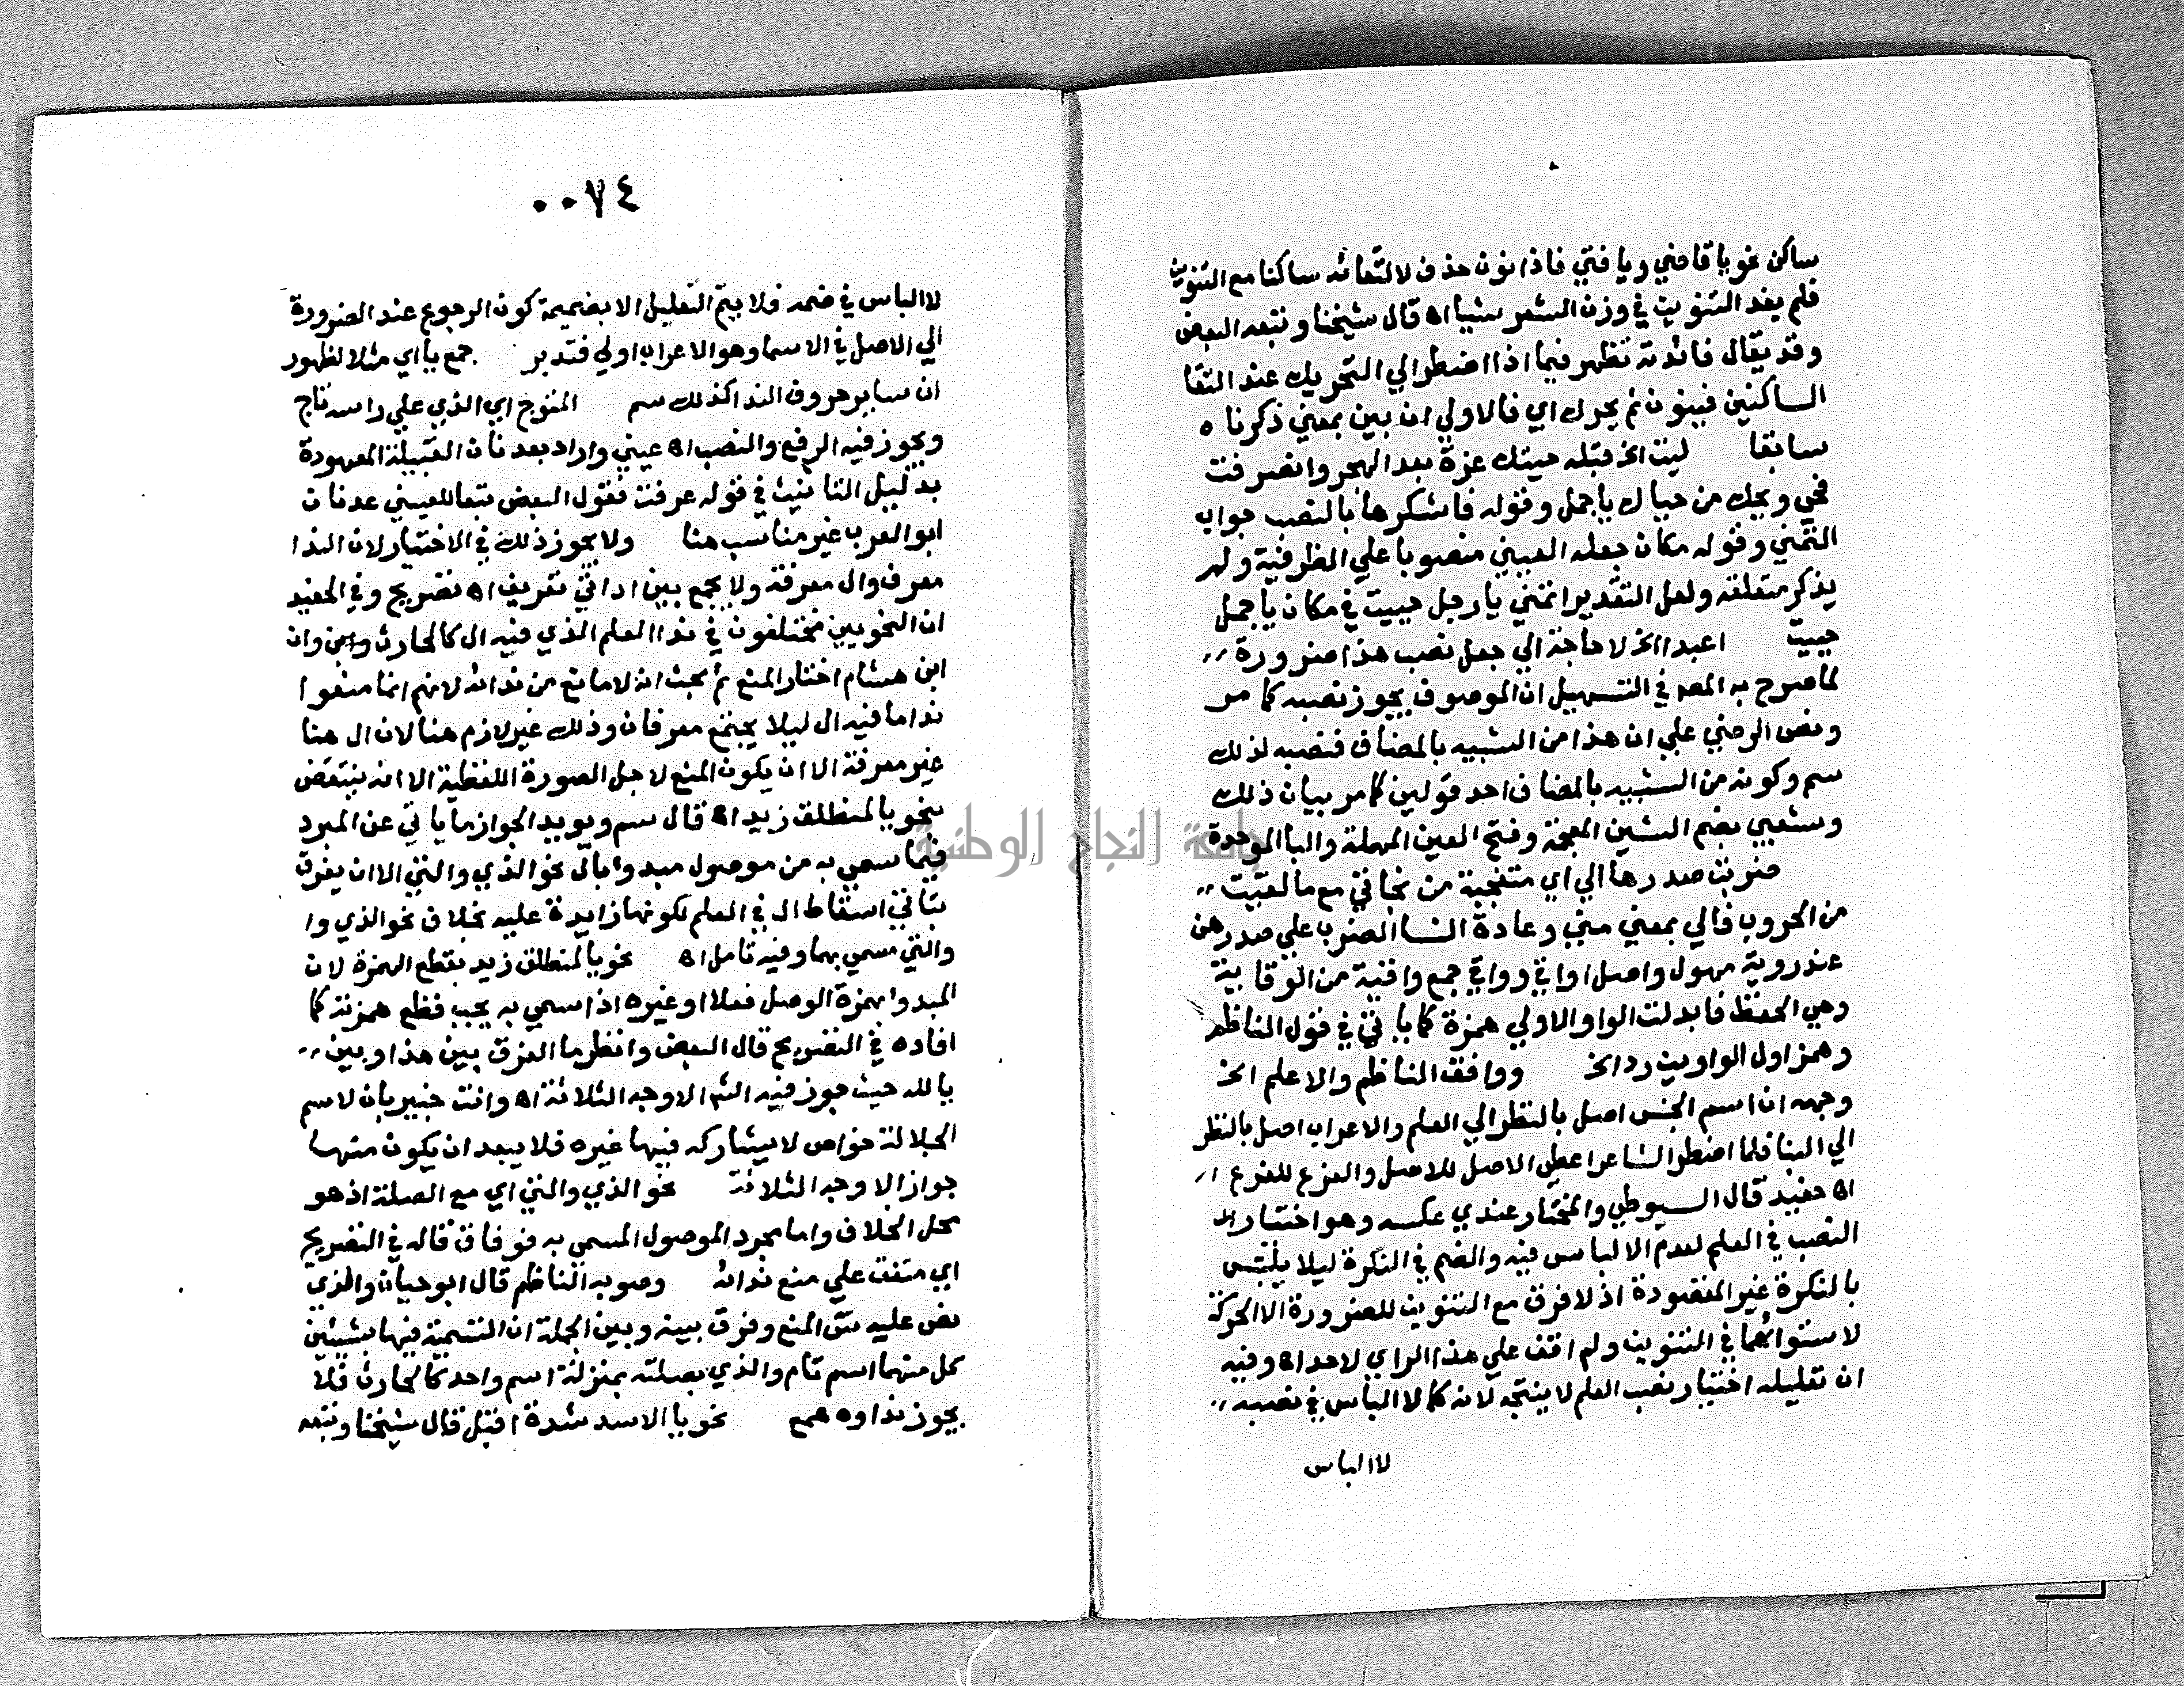 ساكن نحو يا قاضي ويا فتي فاذا نون حذف لالتقائه ساكنا مع التنوين
فلم يفد التنوين في وزن الشعر شيا اه قال شيخنا وتبعه البعض
وقد يقال فائدته تظهر فيما اذا اضطر الي التحريك عند التقا
الساكنين فينون ثم يحرك اي فالاولي ان يبين بمعني ذكرناه
سابقا ليت الخ قبله حيتك عزة بعد الهجر وانصرفت
فحي ويحك من حياك يا جمل وقوله فاشكرها بالنصب جواب
التمني وقوله مكان جعله العيني منصوبا علي الظرفية ولم
يذكر متعلقه ولعل التقدير اتمني يا رجل حييت في مكان يا جمل
حييت اعبدا الخ لا حاجة الي جعل نصب هذا ضرورة
لما صرح به المص في التسهيل ان الموصوف يجوز نصبه كما مر
ونص الرضي علي ان هذا من الشبيه بالمضاف فنصبه لذلك
سم وكونه من الشبيه بالمضاف احد قولين كما مر بيان ذلك
وشعبي بضم الشين المعجمة وفتح العين المهملة والبا الموحدة
ضربت صدرها الي اي متعجبة من نجاتي مع ما لقيت
من الحروب فالي بمعني مني وعادة النسا الضرب علي صدرهن
عند روية مهول واصل اواقي وواقي جمع واقية من الوقاية
وهي الحفظ فابدلت الواو الاولي همزة كما ياتي في قول الناظم
وهمزا اول الواوين رد الخ ووافق الناظم والاعلم الخ
وجهه ان اسم الجنس اصل بالنظر الي العلم والاعراب اصل بالنظر
الي البنا فلما اضطر الشاعر اعطي الاصل للاصل والفرع للفرع
اه حفيد قال السيوطي والمختار عندي عكسه وهو اختيار
النصب في العلم لعدم الالباس فيه والضم في النكرة ليلا يلتبس
بالنكرة غير المقصودة اذ لا فرق مع التنوين للضرورة الا الحركة
لاستوائهما في التنوين ولم اقف علي هذا الراي لاحد اه وفيه
ان تعليله اختيار نصب العلم لا ينتجه لانه كما لا الباس في نصبه
لا الباس
٠٠٧٤
لا الباس في ضمه فلا يتم التعليل الا بضميمة كون الرجوع عند الضرورة
الي الاصل في الاسما وهو الاعراب اولي فتدبر جمع يا اي مثلا لظهور
ان ساير حروف الندا كذلك سم المتوج اي الذي علي راسه تاج
ويجوز فيه الرفع والنصب اه عيني واراد بعدنان القبيلة المعهودة
بدليل التانيث في قوله عرفت فقول البعض تبعا للعيني عدنان
ابو العرب غير مناسب هنا ولا يجوز ذلك في الاختيار لان الندا
معرف وال معرفة ولا يجمع بين اداتي تعريف اه تصريح وفي الحفيد
ان النحويين مختلفون في ندا العلم الذي فيه ال كالحارث وان
ابن هشام اختار المنع ثم بحث انه لا مانع من ندائه لانهم انما منعوا
ندا ما فيه ال ليلا يجتمع معرفان وذلك غير لازم هنا لان ال هنا
غير معرفة الا ان يكون المنع لاجل الصورة اللفظية الا انه ينتقض
بنحو يا المنطلق زيد اه قال سم ويويد الجواز ما ياتي عن المبرد
فيما سمي به من موصول مبدوا بال نحو الذي والتي الا ان يفرق
بتاتي اسقاط ال في العلم لكونها زايدة عليه بخلاف نحو الذي وا
والتي مسمي بهما وفيه تامل اه نحو يا المنطلق زيد بقطع الهمزة لان
المبدوا بهمزة الوصل فعلا او غيره اذا سمي به يجب قطع همزته كما
افاده في التصريح قال البعض وانظر ما الفرق بين هذا وبين
يا لله حيث جوز فيه الثم الاوجه الثلاثة اه وانت خبير بان لاسم
الجلالة خواص لا يشاركه فيها غيره فلا يبعد ان يكون منها
جواز الاوجه الثلاثة نحو الذي والتي اي مع الصلة اذ هو
محل الخلاف واما مجرد الموصول المسمي به فوفاق قاله في التصريح
اي متفق علي منع ندائه وصوبه الناظم قال ابو حيان والذي
نص عليه س المنع وفرق بينه وبين الجملة ان التسمية فيها بشيئين
كل منهما اسم تام والذي بصلته بمنزلة اسم واحد كالحارث فلا
يجوز نداوه همع نحو يا الاسد شدة اقبل قال شيخنا وتبعه
جامعة النجاح الوطنية